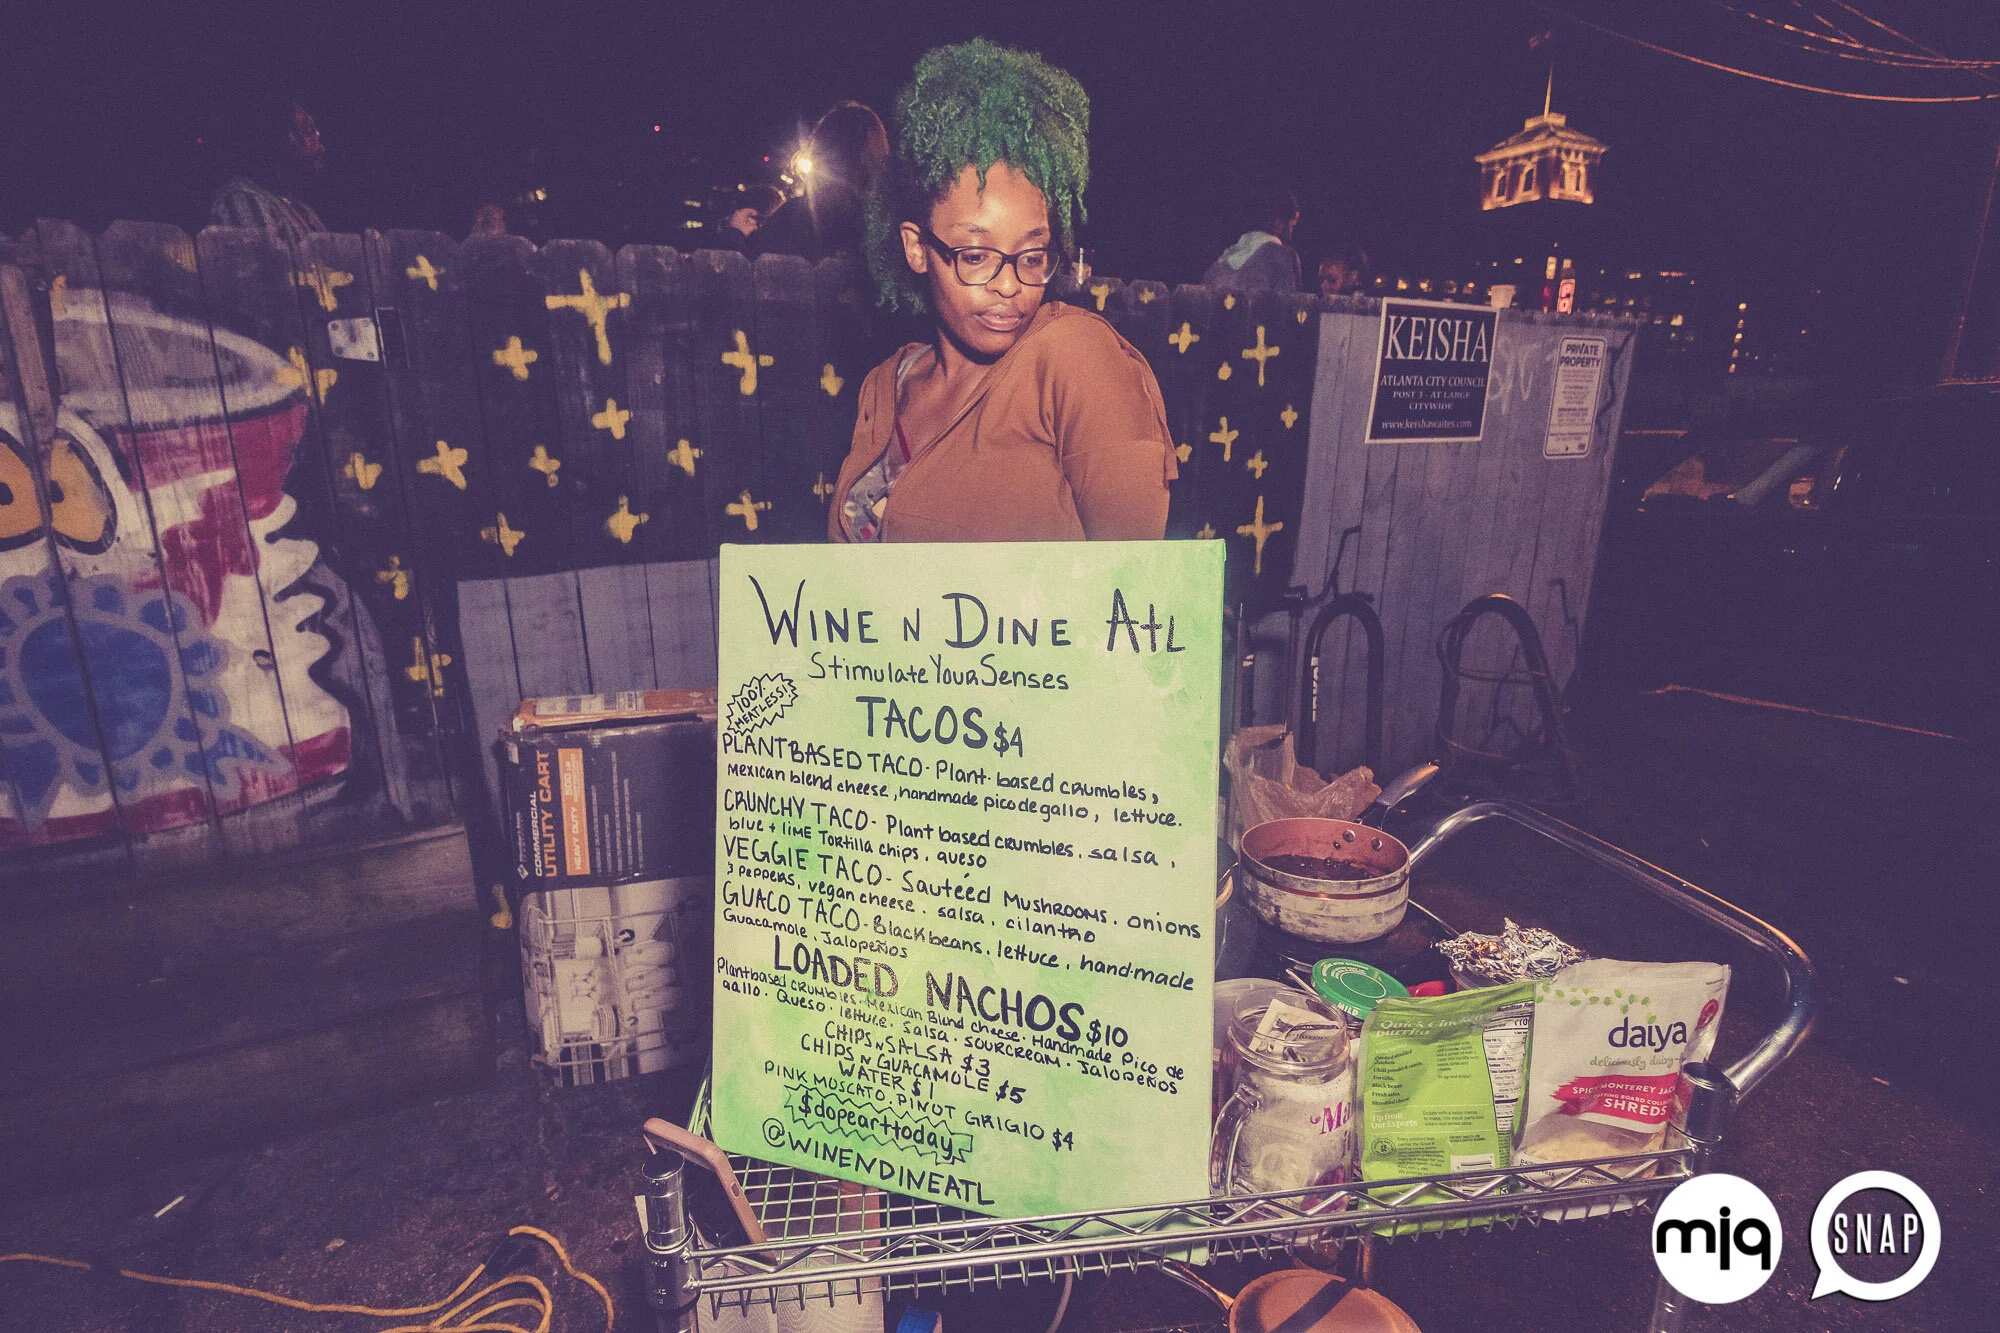 WINE N DINE AtL
Stimulate Your Senses
100%
MEATLESS!
TACOS $4
PLANTBASED TACO - Plant-based crumbles,
Mexican blend cheese, handmade pico de gallo, lettuce.
CRUNCHY TACO - Plant based crumbles, salsa,
blue + lime Tortilla chips, queso
VEGGIE TACO - Sautéed Mushrooms, onions
3 peppers, vegan cheese, salsa, cilantro
GUACO TACO - Black beans, lettuce, hand-made
Guacamole, Jalopeños
LOADED NACHOS $10
Plantbased crumbles. Mexican Blend cheese. Handmade Pico de
gallo. Queso. lettuce. salsa. sourcream. Jalopeños
CHIPS N SALSA $3
CHIPS N GUACAMOLE $5
WATER $1
PINK MOSCATO. PINOT GRIGIO $4
$dopearttoday
@WINENDINEATL
KEISHA
ATLANTA CITY COUNCIL
POST 3 - AT LARGE
CITYWIDE
www.keishawaites.com
PRIVATE
PROPERTY
COMMERCIAL
UTILITY CART
HEAVY DUTY
MILD
Quick Chicken
Burrito
Tortilla,
Black beans
Fresh salsa
Tip from
Our Experts
daiya
deliciously dairy-
SPICY MONTEREY JACK
CUTTING BOARD COLLECTION
SHREDS
mjq
SNAP